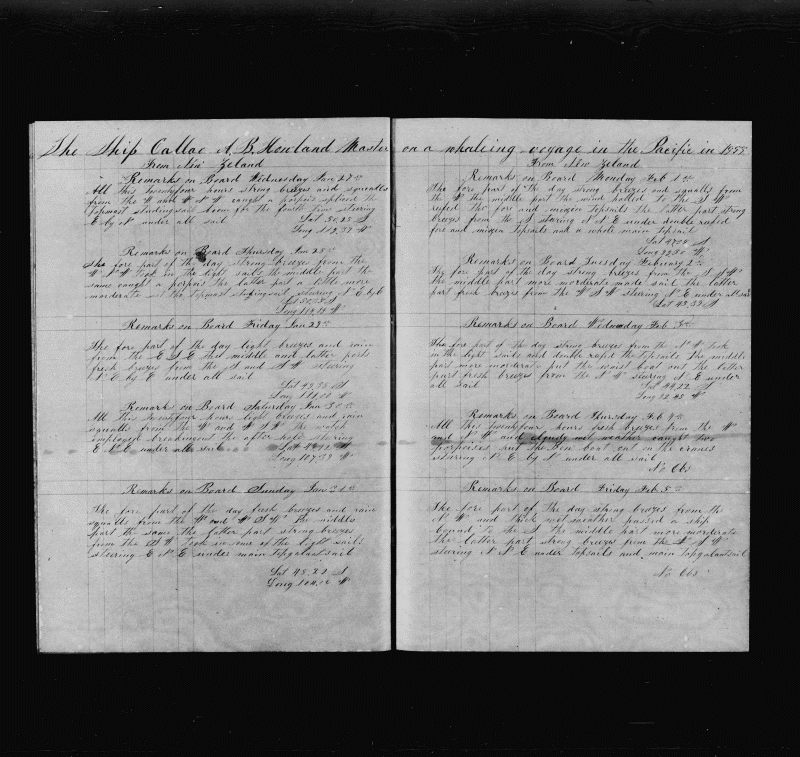 The Ship Callao A. B. Howland Master on a whaleing voyage in the Pacific in 1855
From New Zeland
Remarks on Board Wednesday Jan 27th
All this twentyfour hours strong breezes and squalls
from the W and W N W caught a porpois spliced the
topmost studingsail boom for the fourth time steering
E by N under all sail Lat 50,25 S
Long 112,37 W
Remarks on Board Thursday Jan 28th
The fore part of the day strong breezes from the
W N W took in the light sails the middle part the
same caught a porpois the latter part a little more
morderate set the topmast studingsail steering N E by E
Lat S
Long W
Remarks on Board Friday Jan 29th
The fore part of the day light breezes and rain
from the E S E the middle and latter parts
fresh breezes from the S and S W steering
N E by E under all sail
Lat 49,36 S
Long W
Remarks on Board Saturday Jan 30th
All this twentyfour hours light breezes and rain
squalls from the W and W S W the watch
employed the after steering
E N E under all sail Lat S
Long 107,39 W
Remarks on Board Sunday Jan 31st
The fore part of the day fresh breezes and rain
squalls from the W and W S W the middle
part the same the latter part strong breezes
from the S W took in some of the light sails
steering E N E under main topgalantsail
Lat 48,22 S
Long W
From New Zeland
Remarks on Board Monday Feb 1st
The fore part of the day strong breezes and squalls from
the W the middle part the wind holled to the S W
reefed the for and mizen topsails the latter part strong
breezes from the S steering N E under double reefed
fore and mizen topsails and a whole main topsail
Lat 47,08 S
Long W
Remarks on Board Tuesday February 2th
The fore part of the day strong breezes from the S S W
the middle part more morderate made sail the latter
part fresh breezes from the W S W steering N E under all sail
Lat 45,39 S
Remarks on Board Wednesday Feb 3th
The fore part of the day strong breezes from the N W took
in the light sails and double refed the topsails the middle
part more morderate put the waist boat out the latter
part fresh breezes from the N W steering N E under
all sail Lat 44,22 S
Long 92,45 W
Remarks on Board Thursday Feb 4th
All this twentyfour hours fresh breezes from the W
and N W and cloudy wet weather caught two
porpoises put the bow boat out on the cranes
steering N E by N under all sail
No Obs
Remarks on Board Friday Feb 5th
The fore part of the day strong brezes from the
N W and thick wet weather passed a ship
bound to the S the middle part more morderate
the latter part strong breezes from the W N W
steering N N E under topsails and main topgalantsail
No Obs